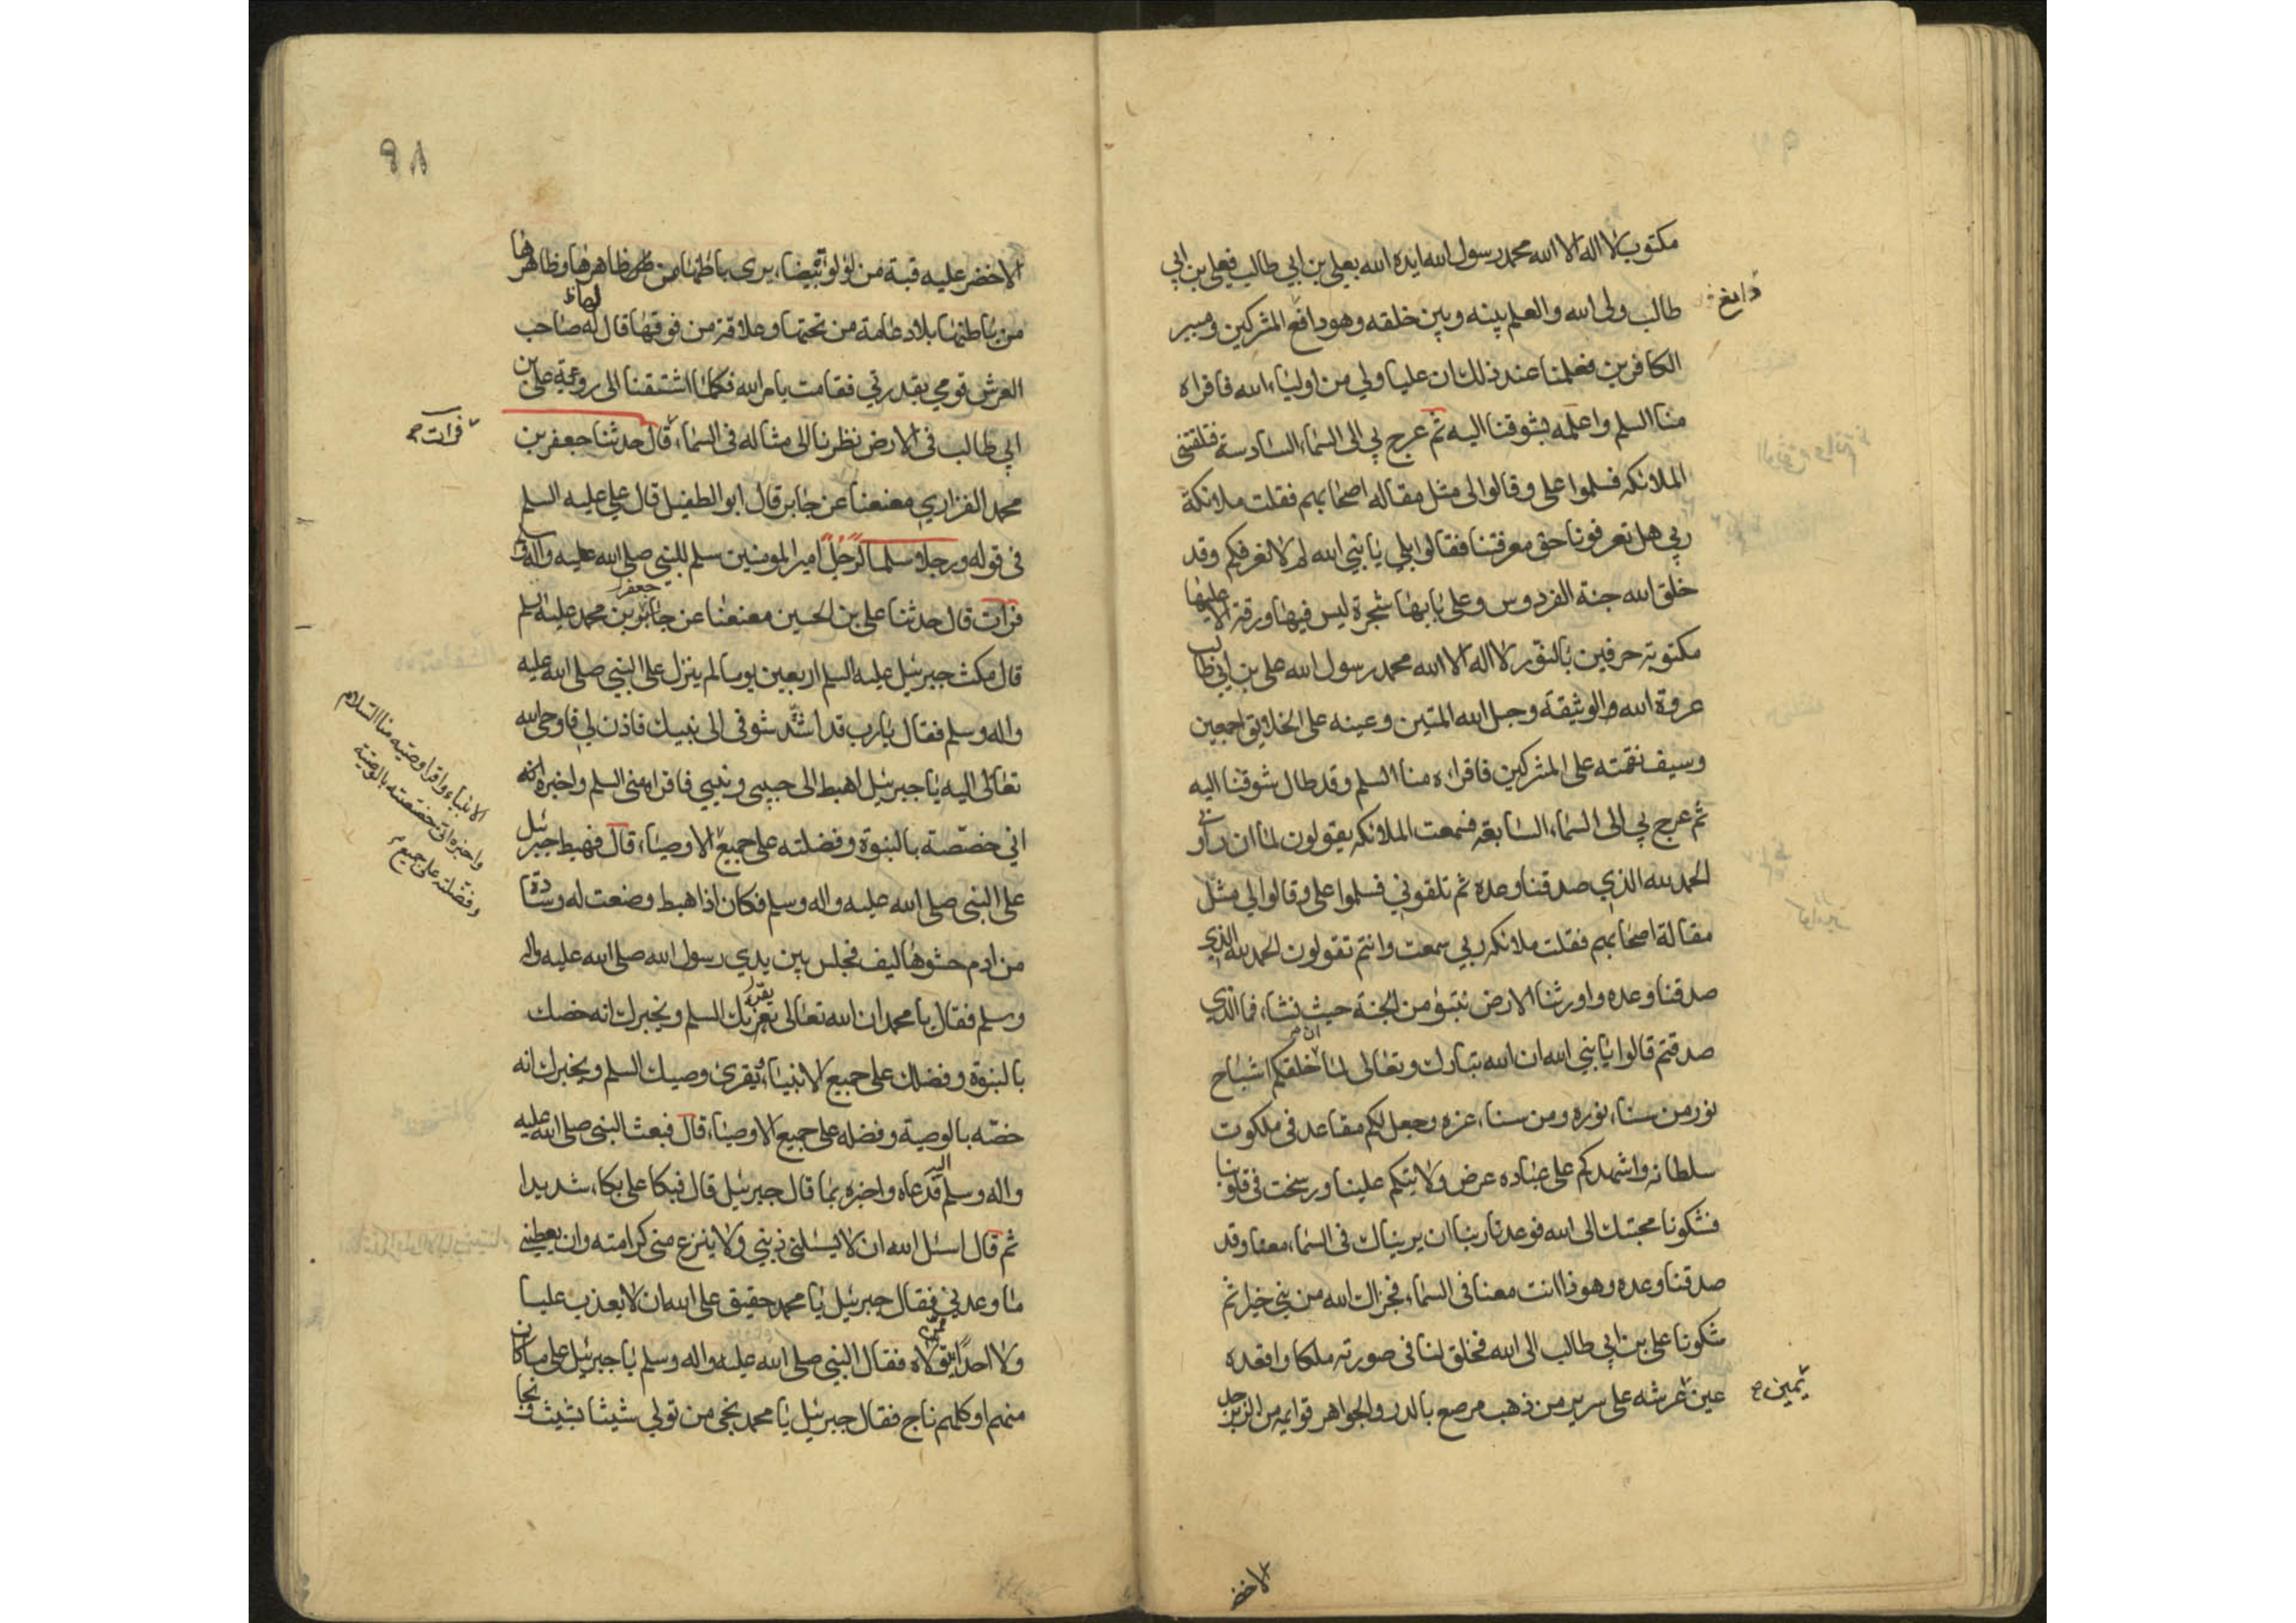 مكتوب لا اله الا الله محمد رسول الله ايده الله بعلي بن ابي طالب فعلي بن ابي
طالب ولي الله والعلم بينه وبين خلقه وهو دافع المشركين ومبير
دامغ
الكافرين فعلمنا عند ذلك ان عليا ولي من اولياء الله فاقراه
منا السلم واعلمه بشوقنا اليه ثم عرج بي الى السماء السادسة فتلقتني
الملائكه فسلموا علي وقالوا لي مثل مقاله اصحابهم فقلت ملائكة
ربي هل تعرفونا حق معرفتنا فقالوا بلي يا نبي الله لم لا نعرفكم وقد
خلق الله جنة الفردوس وعلى بابها شجرة ليس فيها ورقة الا عليها
مكتوبة حرفين بالنور لا اله الا الله محمد رسول الله علي بن ابي طالب
عروة الله الوثيقة وحبل الله المتين وعينه على الخلايق اجمعين
وسيف نقمته على المشركين فاقراه منا السلم وقد طال شوقنا اليه
ثم عرج بي الى السماء السابعه فسمعت الملائكه يقولون لما ان راو
الحمد لله الذي صدقنا وعده ثم تلقوني فسلموا علي وقالوا لي مثل
مقالة اصحابهم فقلت ملائكه ربي سمعت وانتم تقولون الحمد لله الذي
صدقنا وعده واورثنا الارض نتبوٰ من الجنة حيث نشاء فما الذي
صدقتم قالوا يا نبي الله ان الله تبارك وتعالى لما ان خلقكم اشباح
نور من سناء نوره ومن سناء عزه وجعل لكم مقاعد في ملكوت
سلطانه واشهدكم على عباده عرض ولايتكم علينا ورسخت في قلوبنا
فشكونا محبتك الى الله فوعدنا ربنا ان يريناك في السماء معنا وقد
صدقنا وعده وهو ذا انت معنا في السماء فجزاك الله من نبي خيرا ثم
شكونا علي بن ابي طالب الى الله فخلق لنا في صورته ملكا واقعده
عين عرشه على سرير من ذهب مرصع بالدر والجواهر قوايمه من الزبرجد
يمين
الاخضر
٩٨
الاخضر عليه قبة من لؤلؤ بيضاء يرى باطنها من ظاهرها وظاهرها
من باطنها بلا دعامة من تحتها وعلاقة من فوقها قال لها صاحب
العرش قومي بقدرتي فقامت بامر الله فكلما اشتقنا الى روية علي بن
ابي طالب في الارض نظرنا الى مثاله في السماء قال حدثنا جعفر بن
فرات
محمد الفزاري معنعنا عن جابر قال ابو الطفيل قال علي عليه السلم
في قوله ورجلا سلما لرجل امير المومنين سلم للنبي صلى الله عليه واله وسلم
فرات قال حدثنا علي بن الحسين معنعنا عن جعفر بن محمد عليه السلم
قال مكث جبرئيل عليه السلم اربعين يوما لم ينزل على النبي صلى الله عليه
واله وسلم فقال يا رب قد اشتد شوقي الى نبيك فاذن لي فاوحى الله
تعالى اليه يا جبرئيل اهبط الى حبيبي ونبيي فاقراه مني السلم واخبره
اني خصصته بالنبوة وفضلته على جميع الاوصياء قال فهبط جبرئيل
الانبياء واقرا وصيه منا السلام
واخبره اني خصصته بالوصية
وفضلته على جميع
على النبي صلى الله عليه واله وسلم فكان اذا هبط وضعت له وسادة
من ادم حشوها ليف فجلس بين يدي رسول الله صلى الله عليه واله
وسلم فقال يا محمد ان الله تعالى يقرئك السلم ويخبرك انه خصك
بالنبوة وفضلك على جميع الانبياء ويقرئ وصيك السلم ويخبرك انه
خصه بالوصية وفضله على جميع الاوصياء قال فبعث النبي صلى الله عليه
واله وسلم اليه فدعاه واخبره بما قال جبرئيل قال فبكا علي بكاء شديدا
ثم قال اسئل الله ان لا يسلبني ديني ولا ينزع مني كرامته وان يعطيني
ما وعدني فقال جبرئيل يا محمد حقيق على الله ان لا يعذب عليا
ولا احدا تولاه فقال النبي صلى الله عليه واله وسلم يا جبرئيل على ما كان
منهم او كلهم ناج فقال جبرئيل يا محمد نجى من تولى شيثا بشيث ونجا